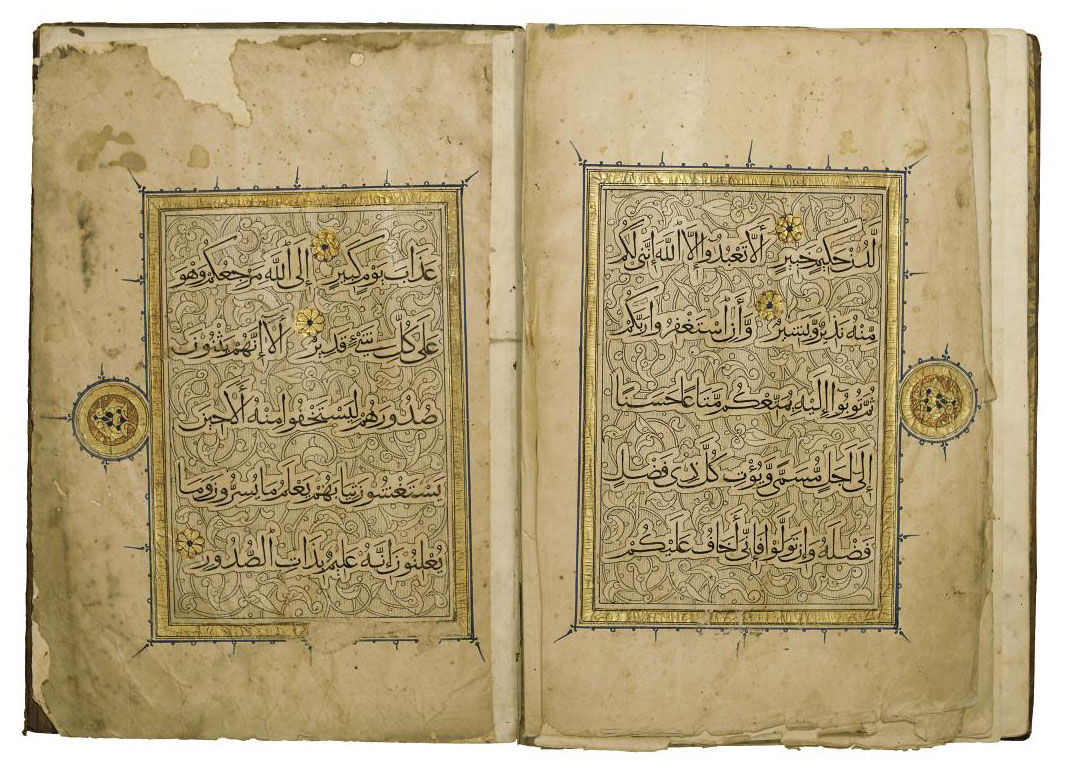 لَّدُنْ حَكِيمٍ خَبِيرٍ أَلَّا تَعْبُدُوٓا إِلَّا اللَّهَ إِنَّنِى لَكُم
مِّنْهُ نَذِيرٌ وَّبَشِيرٌ وَّأَنِ اسْتَغْفِرُوا رَبَّكُمْ
ثُمَّ تُوبُوٓا إِلَيْهِ يُمَتِّعْكُم مَّتَاعًا حَسَنًا
إِلَى أَجَلٍ مُّسَمًّى وَّيُؤْتِ كُلَّ ذِى فَضْلٍ
فَضْلَهُ وَإِن تَوَلَّوْا فَإِنِّى أَخَافُ عَلَيْكُمْ
عَذَابَ يَوْمٍ كَبِيرٍ إِلَى اللَّهِ مَرْجِعُكُمْ وَهُوَ
عَلَى كُلِّ شَىْءٍ قَدِيرٌ أَلَا إِنَّهُمْ يَثْنُونَ
صُدُورَهُمْ لِيَسْتَخْفُوا مِنْهُ أَلَا حِينَ
يَسْتَغْشُونَ ثِيَابَهُمْ يَعْلَمُ مَا يُسِرُّونَ وَمَا
يُعْلِنُونَ إِنَّهُ عَلِيمٌ بِذَاتِ الصُّدُورِ